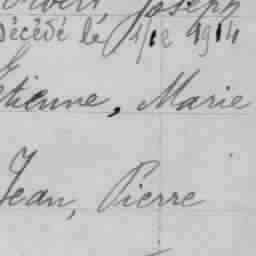 Joseph
Décédé le 1/12 1914
Etienne, Marie
Jean, Pierre